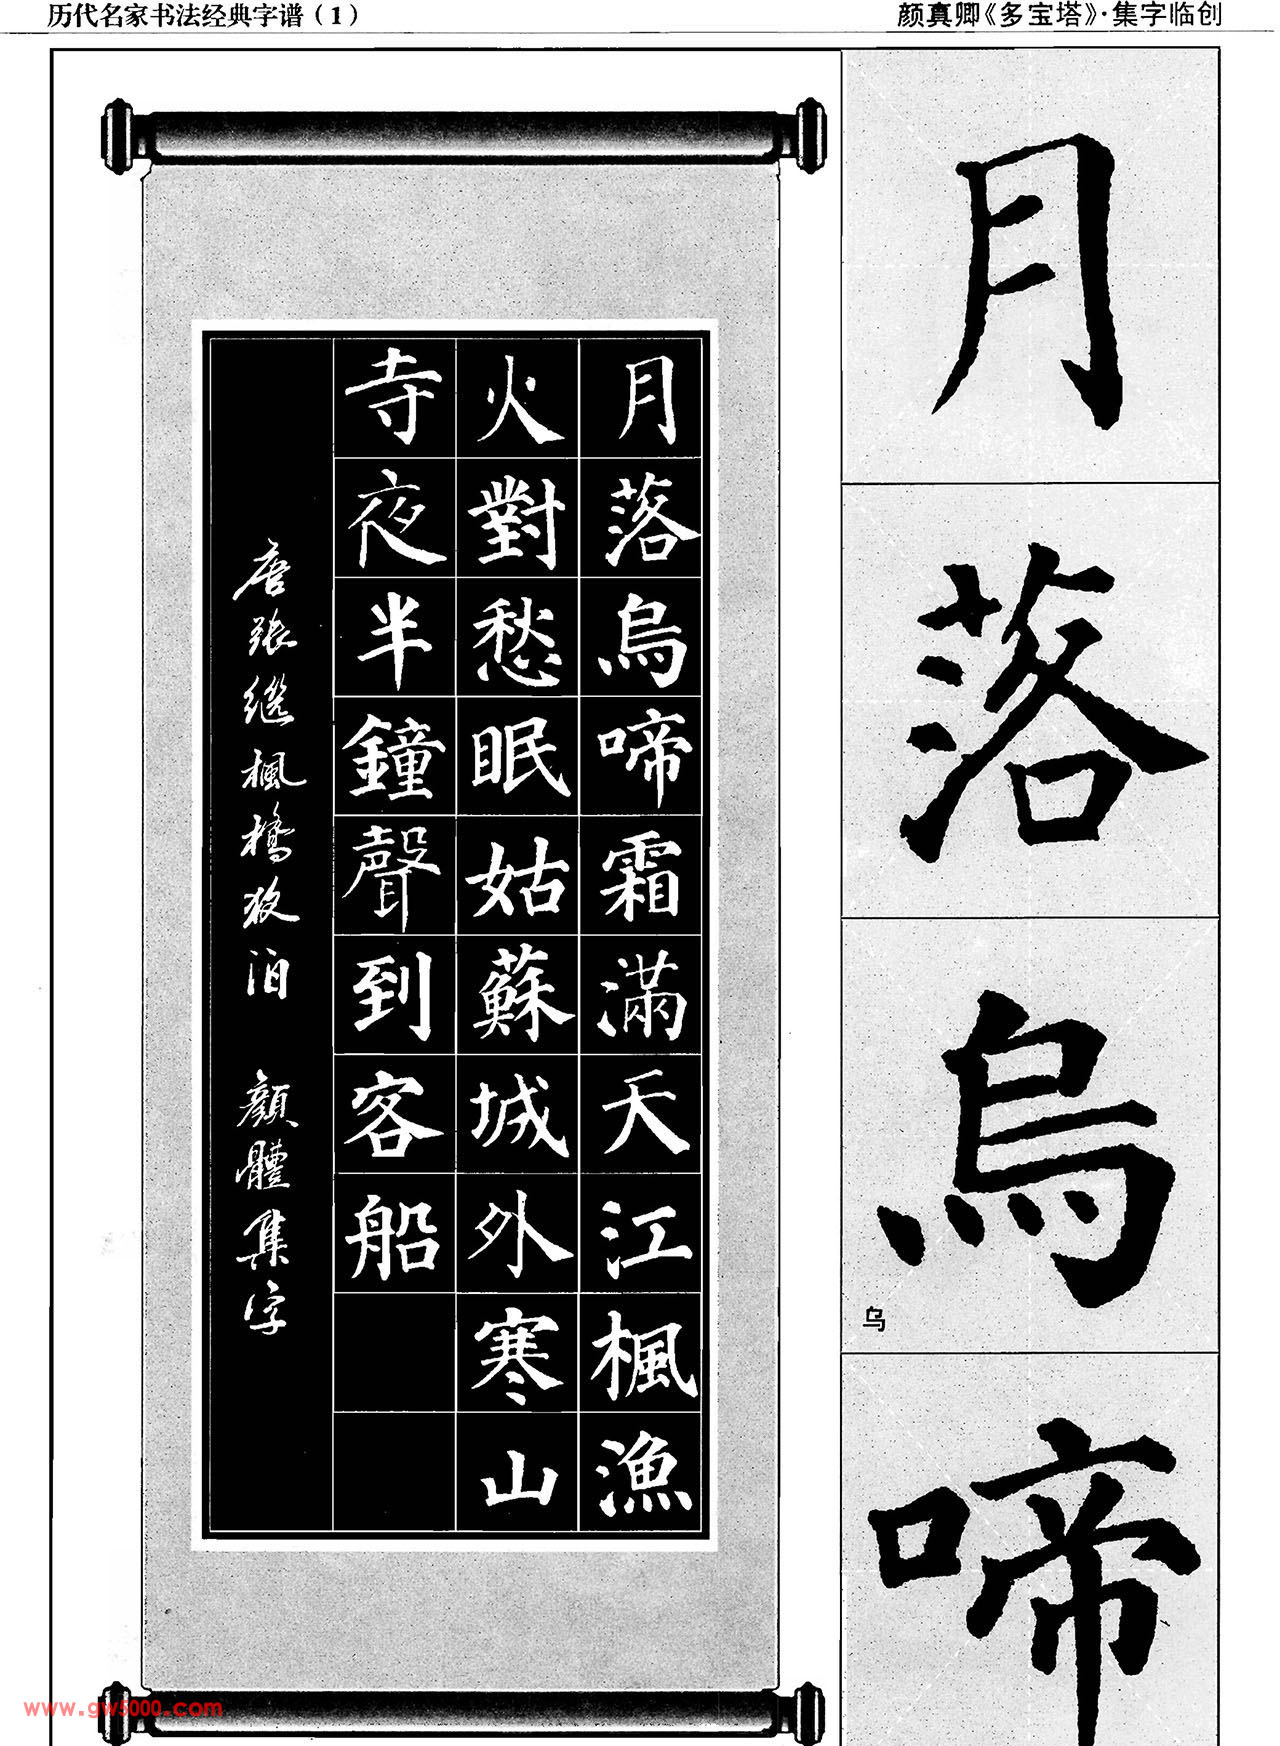 历代名家书法经典字谱（1）
颜真卿《多宝塔》·集字临创
月落烏啼霜滿天江楓漁
火對愁眠姑蘇城外寒山
寺夜半鐘聲到客船
唐張繼楓橋夜泊 顏體集字
月
落
烏
乌
啼
www.gw5000.com